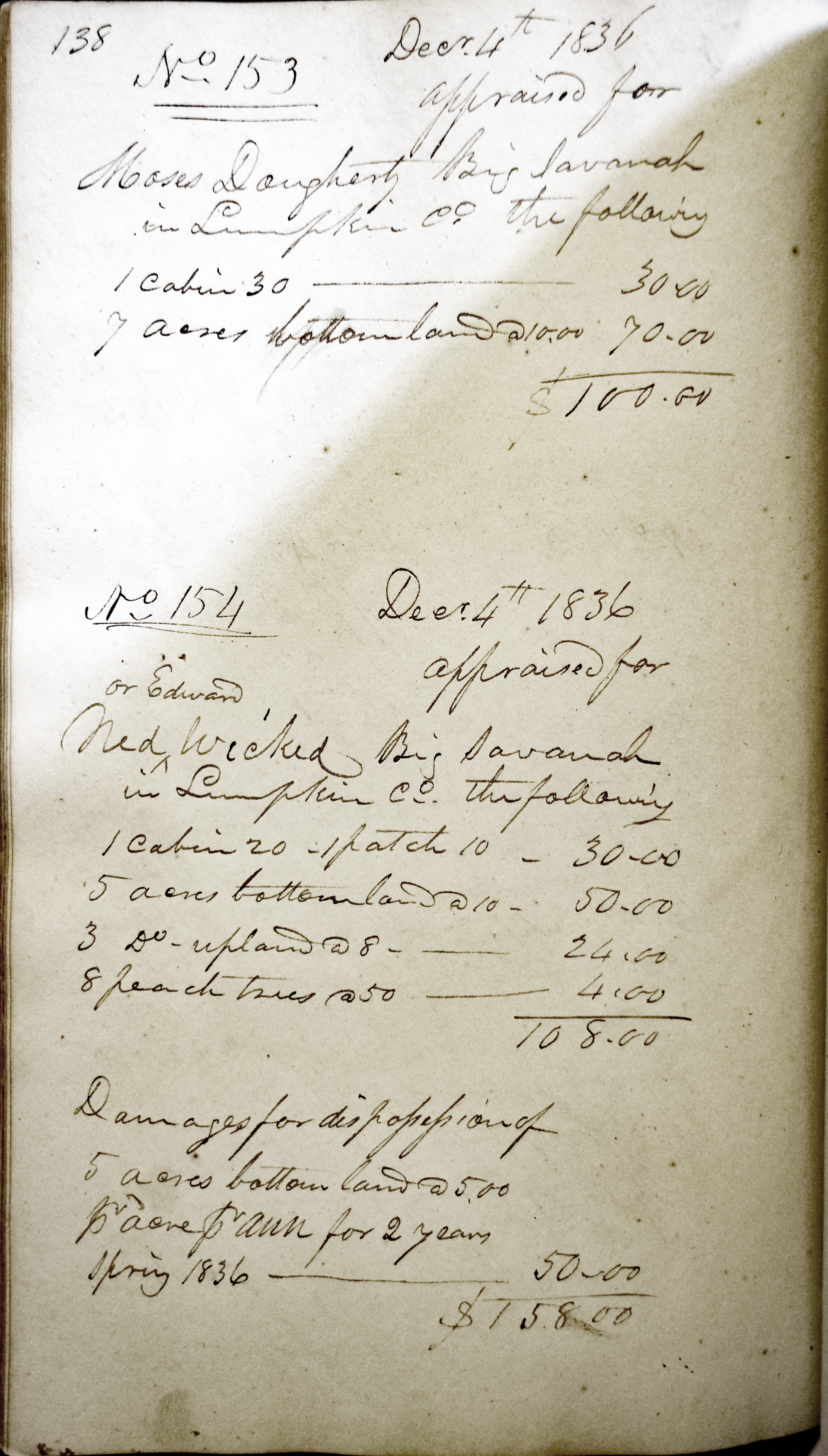 138
No 153
Decr. 4th 1836
appraised for
Moses Dougherty Big Savanah
in Lumpkin Co the following
1 cabin 30 — 30.00
7 acres bottom land @ 10.00 70.00
$100.00
No 154
Decr. 4th 1836
appraised for
or Edward
Ned ^ Wicked Big Savanah
in Lumpkin Co. the following
1 cabin 20 - 1 patch 10 - 30.00
5 acres bottom land @ 10 - 50.00
3 Do - upland @ 8 - — 24.00
8 peach trees @ 50 — 4.00
108.00
Damages for dispossession of
5 acres bottom land @ 5.00
pr acre pr ann for 2 years
Spring 1836 — 50.00
$158.00